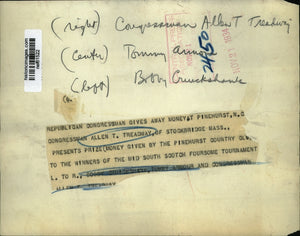 (right) Congressman Allen T Treadway
(center) Tommy Armour
(left) Bobby Cruickshank
REPUBLICAN CONGRESSMAN GIVES AWAY MONEY AT PINEHURST, N.C
CONGRESSMAN ALLEN T. TREADWAY, OF STOCKBRIDGE MASS.,
PRESENTS PRIZE MONEY GIVEN BY THE PINEHURST COUNTRY CLUB
TO THE WINNERS OF THE MID SOUTH SCOTCH FOURSOME TOURNAMENT
L. TO R.,
AND CONGRESSMAN
historicimages.com